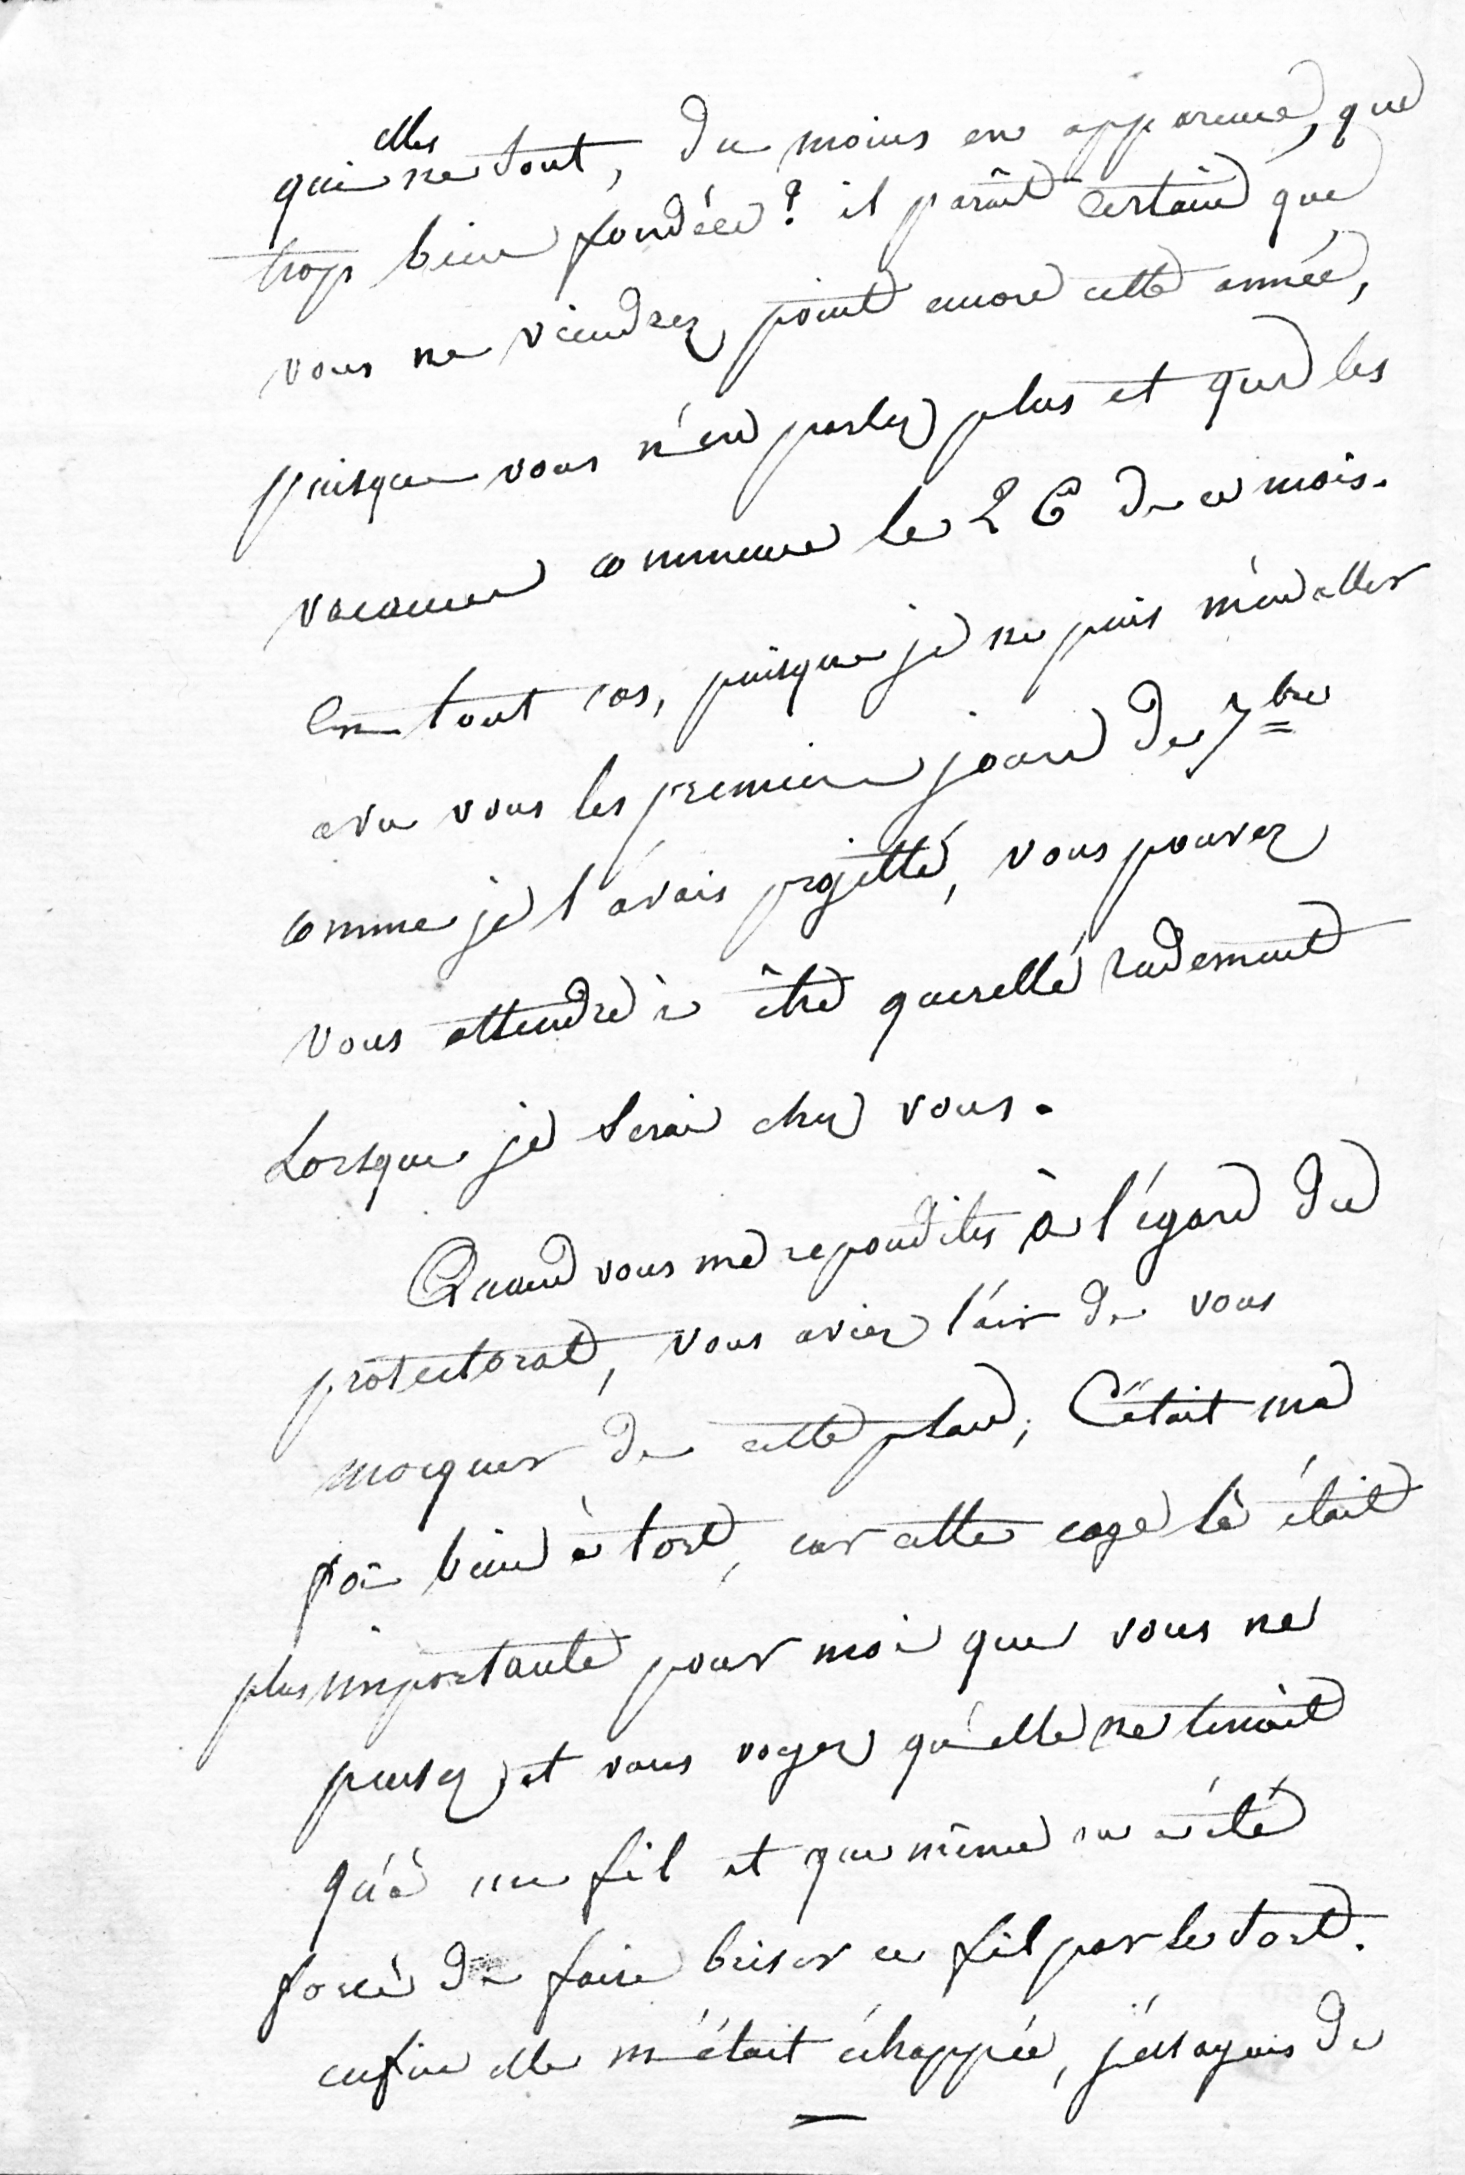 elles
qui ne sont, du moins en apparence, que
trop bien fondées? il paraît certain que
vous ne viendrez point encore cette année,
puisque vous n'en parlez plus et que les
vacances commence le 26 de ce mois.
En tout cas, puisque je ne puis m'en aller
avec vous les premiers jours de 7bre
comme je l'avais projetté, vous pouvez
vous attendre à être querellé rudement
Lorsque je serai chez vous.
Quand vous me repondites à l'égard du
protectorat, vous aviez l'air de vous
mocquer de cette place; C'était ma
foi bien à tort, car cette cage là était
plus importante pour moi que vous ne
pensez et vous voyez qu'elle ne tenait
qu'à un fil et que même on a été
forcé de faire briser ce fil par le sort.
enfin elle m'était échappée, j'éssayais de